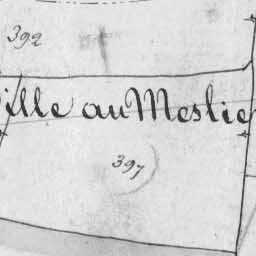 392
ille au Meslie
397